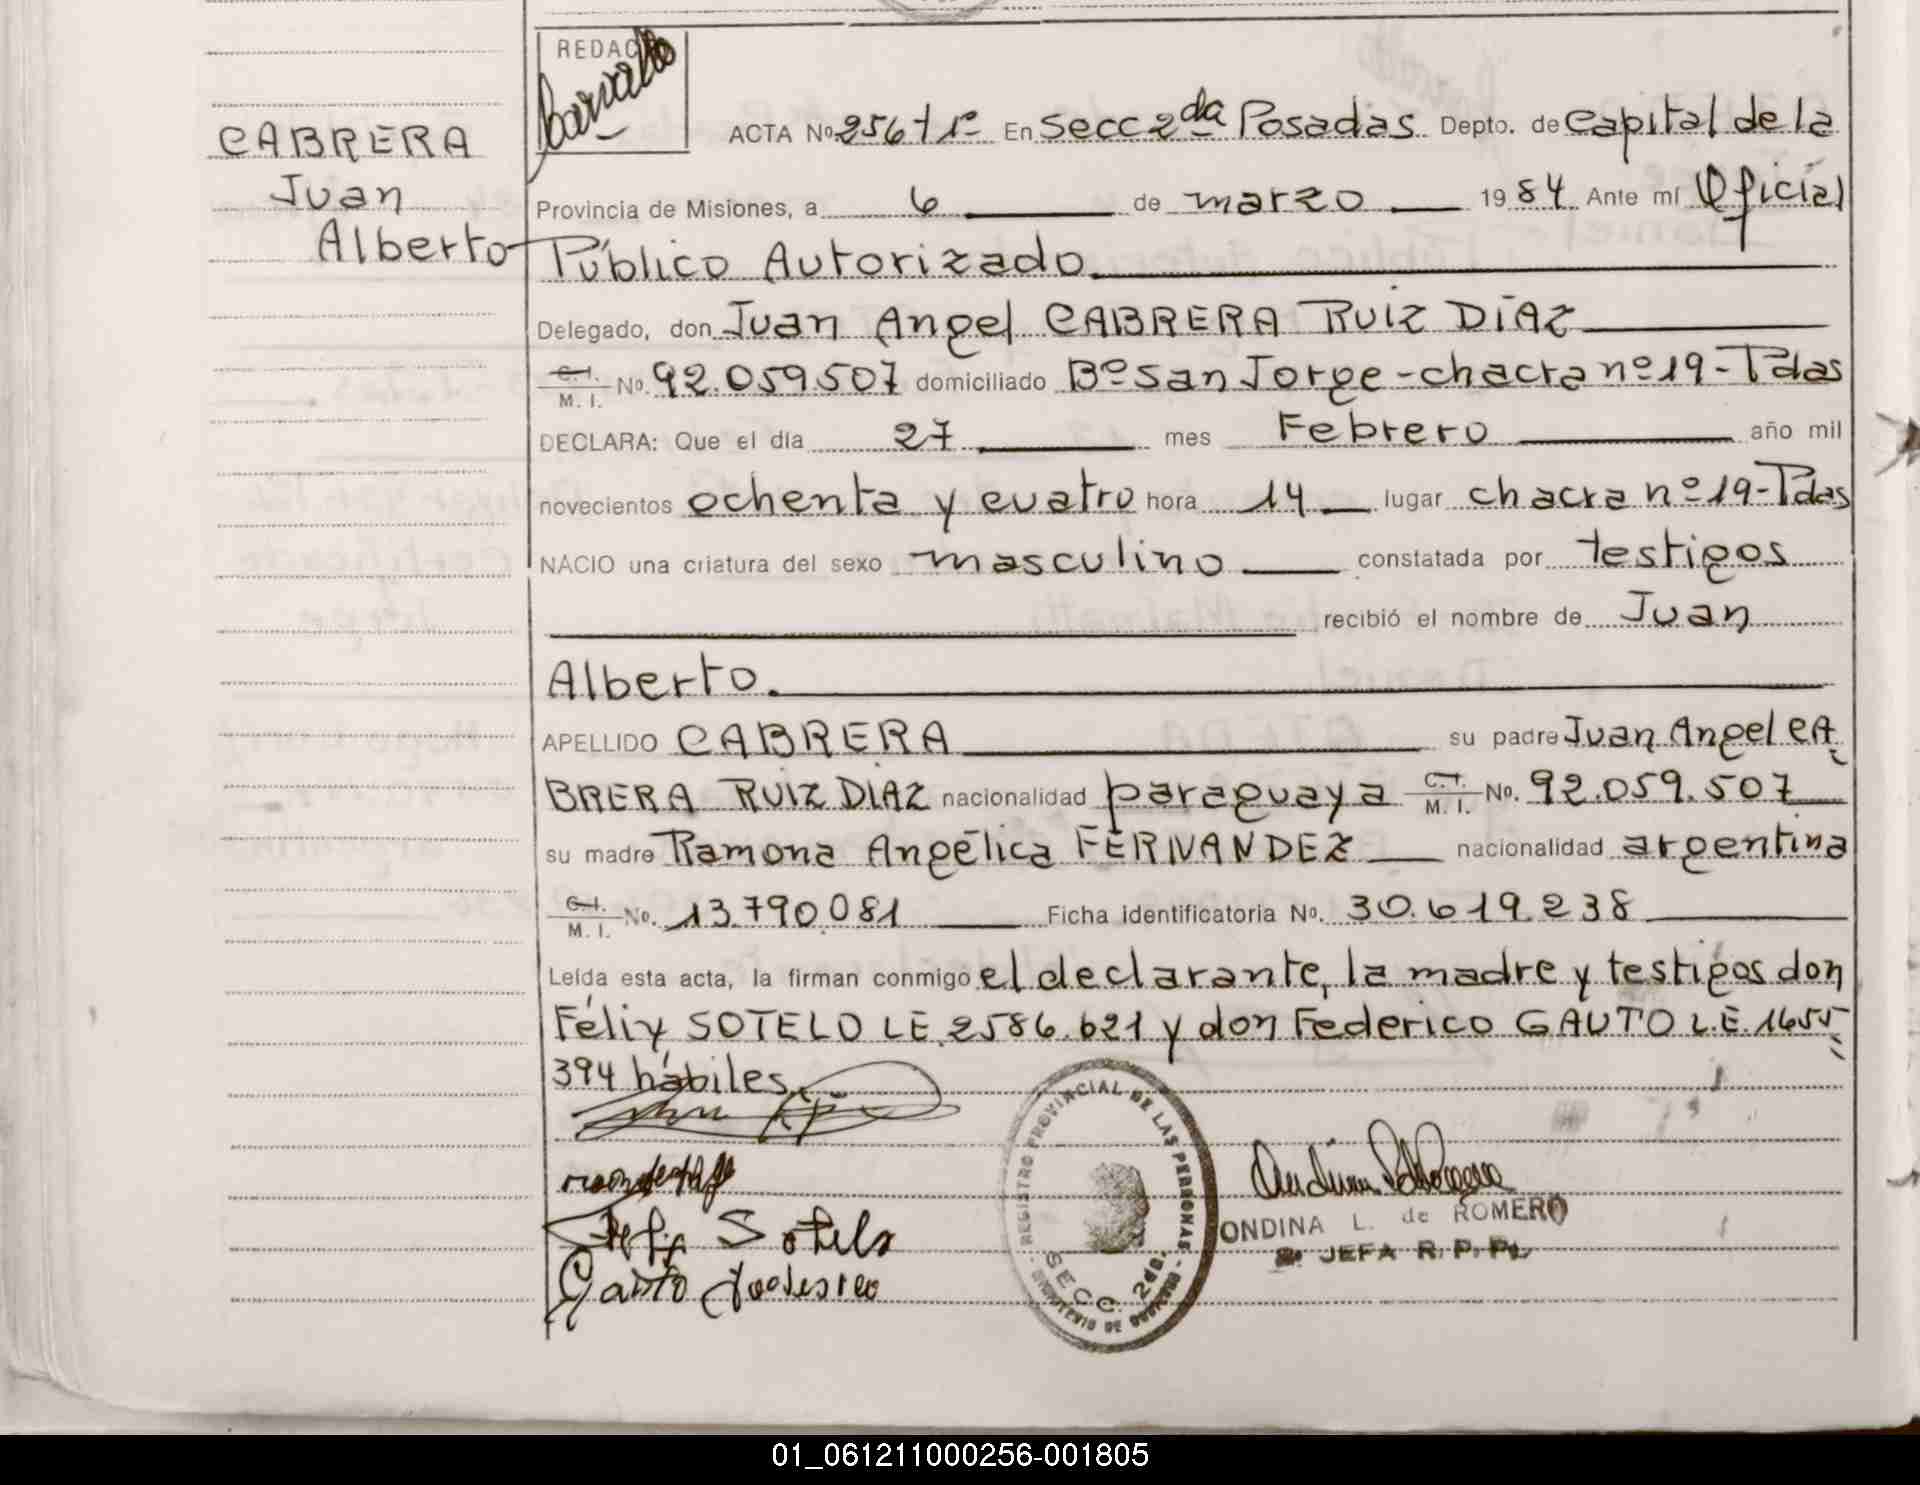 REDAC
CABRERA
Juan
Alberto
ACTA No 256 t 1º En Secc 2da Posadas Depto. de Capital de la
Provincia de Misiones, a 6 de marzo 1984 Ante mí Oficial
Público Autorizado.
Delegado, don Juan Angel CABRERA RUIZ DÍAZ
C.I. M.I. No. 92.059.507 domiciliado Bº San Jorge - chacra nº 19 - Pdas
DECLARA: Que el día 27 mes Febrero año mil
novecientos ochenta y cuatro hora 14 lugar chacra nº 19 - Pdas
NACIO una criatura del sexo masculino constatada por testigos
recibió el nombre de Juan
Alberto.
APELLIDO CABRERA su padre Juan Angel CA
BRERA RUIZ DÍAZ nacionalidad paraguaya C.I. M.I. No. 92.059.507
su madre Ramona Angélica FERNANDEZ nacionalidad argentina
C.I. M.I. No. 13.790.081 Ficha identificatoria No. 30.619.238
Leída esta acta, la firman conmigo el declarante, la madre y testigos don
Félix SOTELO LE. 2586.621 y don Federico GAUTO L.E. 1655
394 hábiles.
Sotelo
Gauto
REGISTRO PROVINCIAL DE LAS PERSONAS
SECC. 2da.
MINISTERIO DE GOBIERNO
ONDINA L. de ROMERO
JEFA R. P. P.
01_061211000256-001805